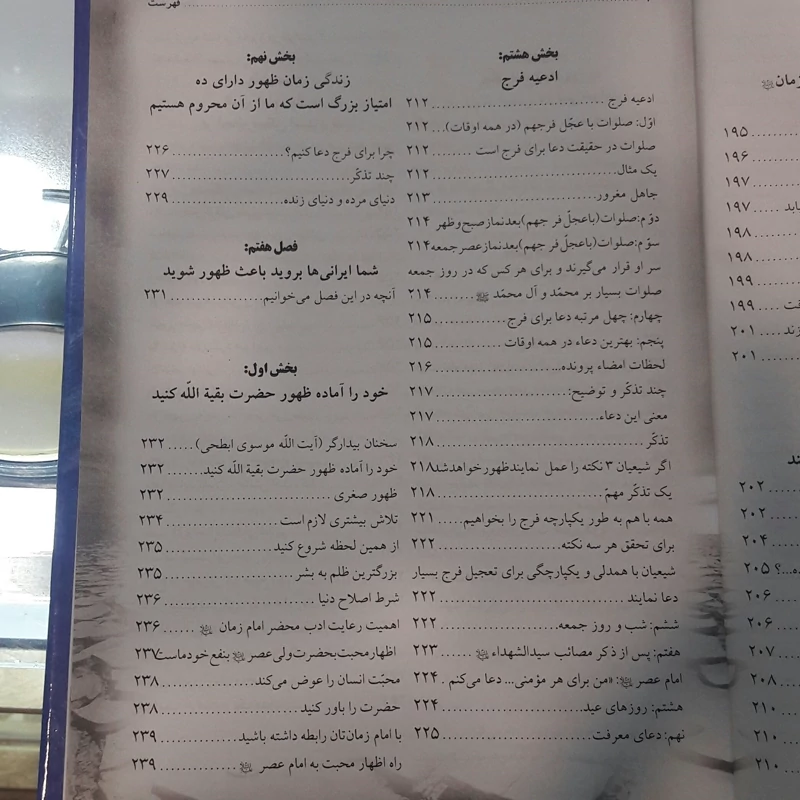 فهرست
بخش هشتم:
ادعیه فرج
ادعیه فرج ........ ۲۱۲
اوّل: صلوات با عجّل فرجهم (در همه اوقات)... ۲۱۲
صلوات در حقیقت دعا برای فرج است ........ ۲۱۲
یک مثال........ ۲۱۲
جاهل مغرور........ ۲۱۳
دوّم:صلوات(باعجلّ فر جهم)بعدنمازصبح‌وظهر ۲۱۴
سوّم:صلوات(باعجلّ فر جهم)بعدنمازعصرجمعه۲۱۴
سر او قرار می‌گیرند و برای هر کس که در روز جمعه
صلوات بسیار بر محمّد و آل محمّد ........ ۲۱۴
چهارم: چهل مرتبه دعا برای فرج........ ۲۱۵
پنجم: بهترین دعاء در همه اوقات ........ ۲۱۵
لحظات امضاء پرونده........ ۲۱۶
چند تذکّر و توضیح:........ ۲۱۷
معنی این دعاء........ ۲۱۷
تذکّر ........ ۲۱۸
اگر شیعیان ۳ نکته را عمل نمایندظهورخواهدشد۲۱۸
یک تذکّر مهمّ........ ۲۱۸
همه با هم به طور یکپارچه فرج را بخواهیم..... ۲۲۱
برای تحقق هر سه نکته........ ۲۲۲
شیعیان با همدلی و یکپارچگی برای تعجیل فرج بسیار
دعا نمایند ........ ۲۲۲
ششم: شب و روز جمعه........ ۲۲۲
هفتم: پس از ذکر مصائب سیدالشهداء ...... ۲۲۳
امام عصر : «من برای هر مؤمنی... دعا می‌کنم . ۲۲۴
هشتم: روزهای عید........ ۲۲۴
نهم: دعای معرفت........ ۲۲۵
بخش نهم:
زندگی زمان ظهور دارای ده
امتیاز بزرگ است که ما از آن محروم هستیم
چرا برای فرج دعا کنیم؟........ ۲۲۶
چند تذکّر........ ۲۲۷
دنیای مرده و دنیای زنده........ ۲۲۹
فصل هفتم:
شما ایرانی‌ها بروید باعث ظهور شوید
آنچه در این فصل می‌خوانیم........ ۲۳۱
بخش اول:
خود را آماده ظهور حضرت بقیة اللّه کنید
سخنان بیدارگر (آیت اللّه موسوی ابطحی) ..... ۲۳۲
خود را آماده ظهور حضرت بقیة اللّه کنید....... ۲۳۲
ظهور صغری ........ ۲۳۲
تلاش بیشتری لازم است ........ ۲۳۴
از همین لحظه شروع کنید........ ۲۳۵
بزرگترین ظلم به بشر ........ ۲۳۵
شرط اصلاح دنیا ........ ۲۳۶
اهمیت رعایت ادب محضر امام زمان ...... ۲۳۶
اظهارمحبت‌بحضرت‌ولی‌عصر بنفع خودماست۲۳۷
محبّت انسان را عوض می‌کند........ ۲۳۸
حضرت را باور کنید ........ ۲۳۸
با امام زمان‌تان رابطه داشته باشید ........ ۲۳۹
راه اظهار محبت به امام عصر ........ ۲۳۹
زمان
۱۹۵
۱۹۶
۱۹۷
۱۹۷
۱۹۸
۱۹۸
۱۹۹
۱۹۹
۲۰۱
۲۰۱
۲۰۲
۲۰۲
۲۰۴
۲۰۵
۲۰۶
۲۰۶
۲۰۷
۲۰۸
۲۱۰
۲۱۰
۲۱۰